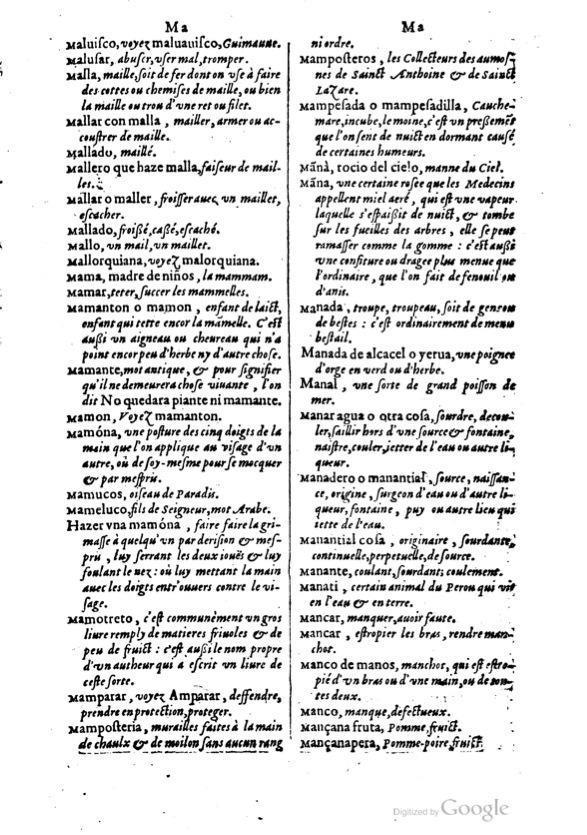 Ma
Maluisco, voyez maluauisco, Guimauue.
Malusar, abuser, vser mal, tromper.
Malla, maille, soit de fer dont on vse à faire
des cottes ou chemises de maille, ou bien
la maille ou trou d'vne ret ou filet.
Mallar con malla, mailler, armer ou ac-
coustrer de maille.
Mallado, maillé.
Mallero que haze malla, faiseur de mail-
les.
Mallar o maller, froisser auec vn maillet,
escacher.
Mallado, froißé, caßé, escaché.
Mallo, vn mail, vn maillet.
Mallorquiana, voyez malorquiana.
Mama, madre de niños, la mammam.
Mamar, teter, succer les mammelles.
Mamanton o mamon, enfant de laict,
enfant qui tette encor la mãmelle. C'est
außi vn aigneau ou cheureau qui n'a
point encor peu d'herbe ny d'autre chose.
Mamante, mot antique, & pour signifier
qu'il ne demeurera chose viuante, l'on
dit No quedara piante ni mamante.
Mamon, Voyez mamanton.
Mamóna, vne posture des cinq doigts de la
main que l'on applique au visage d'vn
autre, où de soy-mesme pour se mocquer
& par mespris.
Mamucos, oiseau de Paradis.
Mameluco, fils de Seigneur, mot Arabe.
Hazer vna mamóna, faire faire la gri-
masse à quelqu'vn par derision & mes-
pris, luy serrant les deux iouës & luy
foulant le nez: où luy mettant la main
auec les doigts entr'ouuers contre le vi-
sage.
Mamotreto, c'est communément vn gros
liure remply de matieres friuoles & de
peu de fruict: c'est außi le nom propre
d'vn autheur qui a escrit vn liure de
ceste sorte.
Mamparar, voyez Amparar, deffendre,
prendre en protection, proteger.
Mamposteria, murailles faites à la main
de chaulx & de moilon sans aucun rang
Ma
ni ordre.
Mamposteros, les Collecteurs des aumos-
nes de Sainct Anthoine & de Sainct
Lazare.
Mampesada o mampesadilla, Cauche-
mare, incube, le moine, c'est vn preßemẽt
que l'on sent de nuict en dormant causé
de certaines humeurs.
Mãnà, rocio del cielo, manne du Ciel.
Mãna, vne certaine rosee que les Medecins
appellent miel aeré, qui est vne vapeur
laquelle s'espaißit de nuict, & tombe
sur les fueilles des arbres, elle se peut
ramasser comme la gomme: c'est außi
vne confiture ou dragee plus menue que
l'ordinaire, que l'on fait de fenouil ou
d'anis.
Manada, troupe, troupeau, soit de gens ou
de bestes: c'est ordinairement de menu
bestail.
Manada de alcacel o yerua, vne poignee
d'orge en verd ou d'herbe.
Manal, vne sorte de grand poisson de
mer.
Manar agua o otra cosa, sourdre, decou-
ler, saillir hors d'vne source & fontaine,
naistre, couler, jetter de l'eau ou autre li-
queur.
Manadero o manantial, source, naissan-
ce, origine, surgeon d'eau ou d'autre li-
queur, fontaine, puy ou autre lieu qui
iette de l'eau.
Manantial cosa, originaire, sourdante,
continuelle, perpetuelle, de source.
Manante, coulant, sourdant; coulement.
Manati, certain animal du Perou qui vit
en l'eau & en terre.
Mancar, manquer, auoir faute.
Mancar, estropier les bras, rendre man-
chot.
Manco de manos, manchot, qui est estro-
pié d'vn bras ou d'vne main, ou de tou-
tes deux.
Manco, manque, defectueux.
Mançana fruta, Pomme, fruict.
Mançanapera, Pomme-poire, fruict.
Digitized by Google